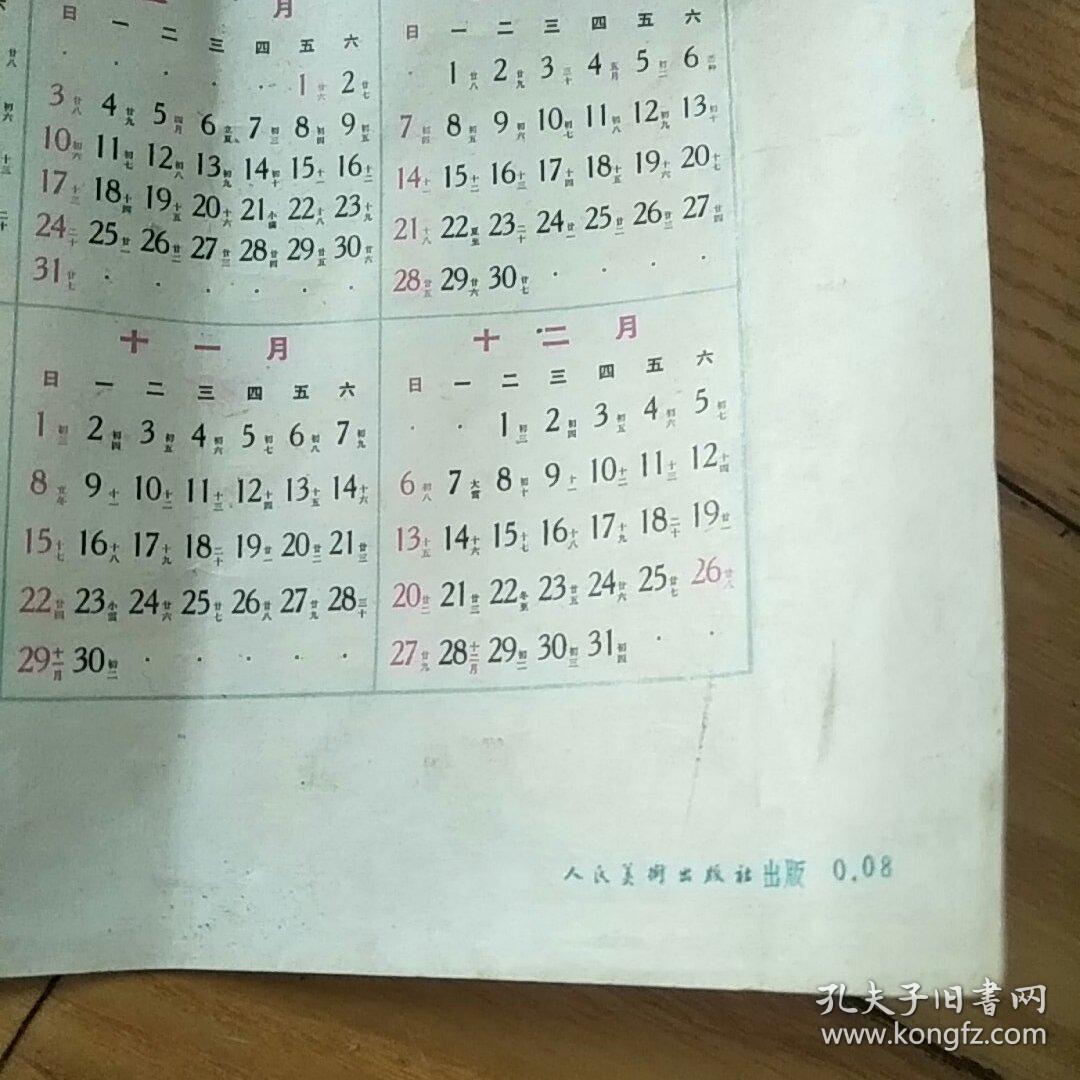 月
日 一 二 三 四 五 六
1廿六 2廿七
3廿八 4廿九 5四月 6立夏 7初三 8初四 9初五
10初六 11初七 12初八 13初九 14初十 15十一 16十二
17十三 18十四 19十五 20十六 21小满 22十八 23十九
24二十 25廿一 26廿二 27廿三 28廿四 29廿五 30廿六
31廿七
日 一 二 三 四 五 六
1廿八 2廿九 3三十 4五月 5初二 6芒种
7初四 8初五 9初六 10初七 11初八 12初九 13初十
14十一 15十二 16十三 17十四 18十五 19十六 20十七
21十八 22夏至 23二十 24廿一 25廿二 26廿三 27廿四
28廿五 29廿六 30廿七
十一月
日 一 二 三 四 五 六
1初三 2初四 3初五 4初六 5初七 6初八 7初九
8立冬 9十一 10十二 11十三 12十四 13十五 14十六
15十七 16十八 17十九 18二十 19廿一 20廿二 21廿三
22廿四 23小雪 24廿六 25廿七 26廿八 27廿九 28三十
29十一月 30初二
十二月
日 一 二 三 四 五 六
1初三 2初四 3初五 4初六 5初七
6初八 7大雪 8初十 9十一 10十二 11十三 12十四
13十五 14十六 15十七 16十八 17十九 18二十 19廿一
20廿二 21廿三 22冬至 23廿五 24廿六 25廿七 26廿八
27廿九 28十二月 29初二 30初三 31初四
人民美術出版社出版 0.08
孔夫子旧書网
www.kongfz.com